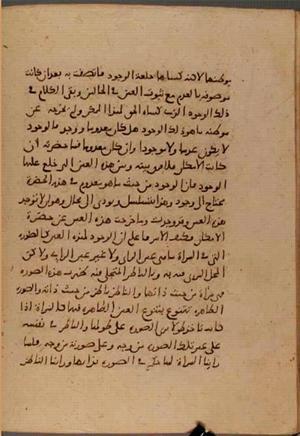 يوكنها لانه كساها خلعة الوجود فاتصفت به بعد ان كانت
موصوفة بالعدم مع ثبوت العين في الحالين وبقي الكلام في
ذلك الوجود الذي كساه الحق لهذا الممكن ولم يخرجه عن
موطنه ما هو هذا الوجود هل كان معدوما ووجد فالوجود
لا يكون عدما ولا موجودا وان كان معدوما فما حضرته ان
كانت الامكان فلا فرق بينه وبين هذه العين التي خلع عليها
الوجود فان الوجود من حيث ما هو معدوم في هذه الحضرة
محتاج الى وجود وهذا يتسلسل ويودي الى محال وهو ان لا توجد
هذه العين وقد وجدت وما خرجت هذه العين عن حضرة
الامكان فكيف الامر فاعلم ان الوجود لهذه العين كالصورة
التي في المرآة ما هي عين الراي ولا غير عين الراي ولكن
المحل المرئي فيه به وبالناظر المتجلي فيه ظهرت هذه الصورة
فهي مرآة من حيث ذاتها والناظر ناظر من حيث ذاته والصورة
الظاهرة تتنوع بتنوع العين الظاهرة فيها كالمرآة اذا
كانت تاخذ طولا ترى الصورة على طولها والناظر في نفسه
على غير تلك الصورة من وجه وعلى صورته من وجه فلما
راينا المرآة لها حكم في الصورة بذاتها وراينا الناظر